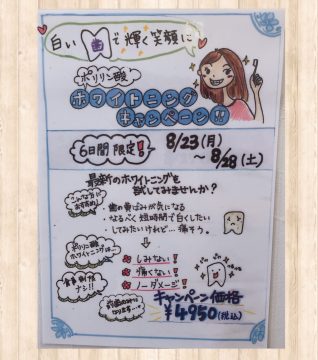 白い歯で輝く笑顔に
ポリリン酸
ホワイトニング
キャンペーン!!
6日間限定!
8/23(月)
~8/28(土)
最新のホワイトニングを
試してみませんか?
こんな方に
おすすめ!
・歯の黄ばみが気になる
・なるべく短時間で白くしたい
・してみたいけれど…痛そう。
ポリリン酸
ホワイトニングは…
しみない!
痛くない!
ノーダメージ!
食事制限
ナシ!!
キャンペーン価格
¥4950(税込)